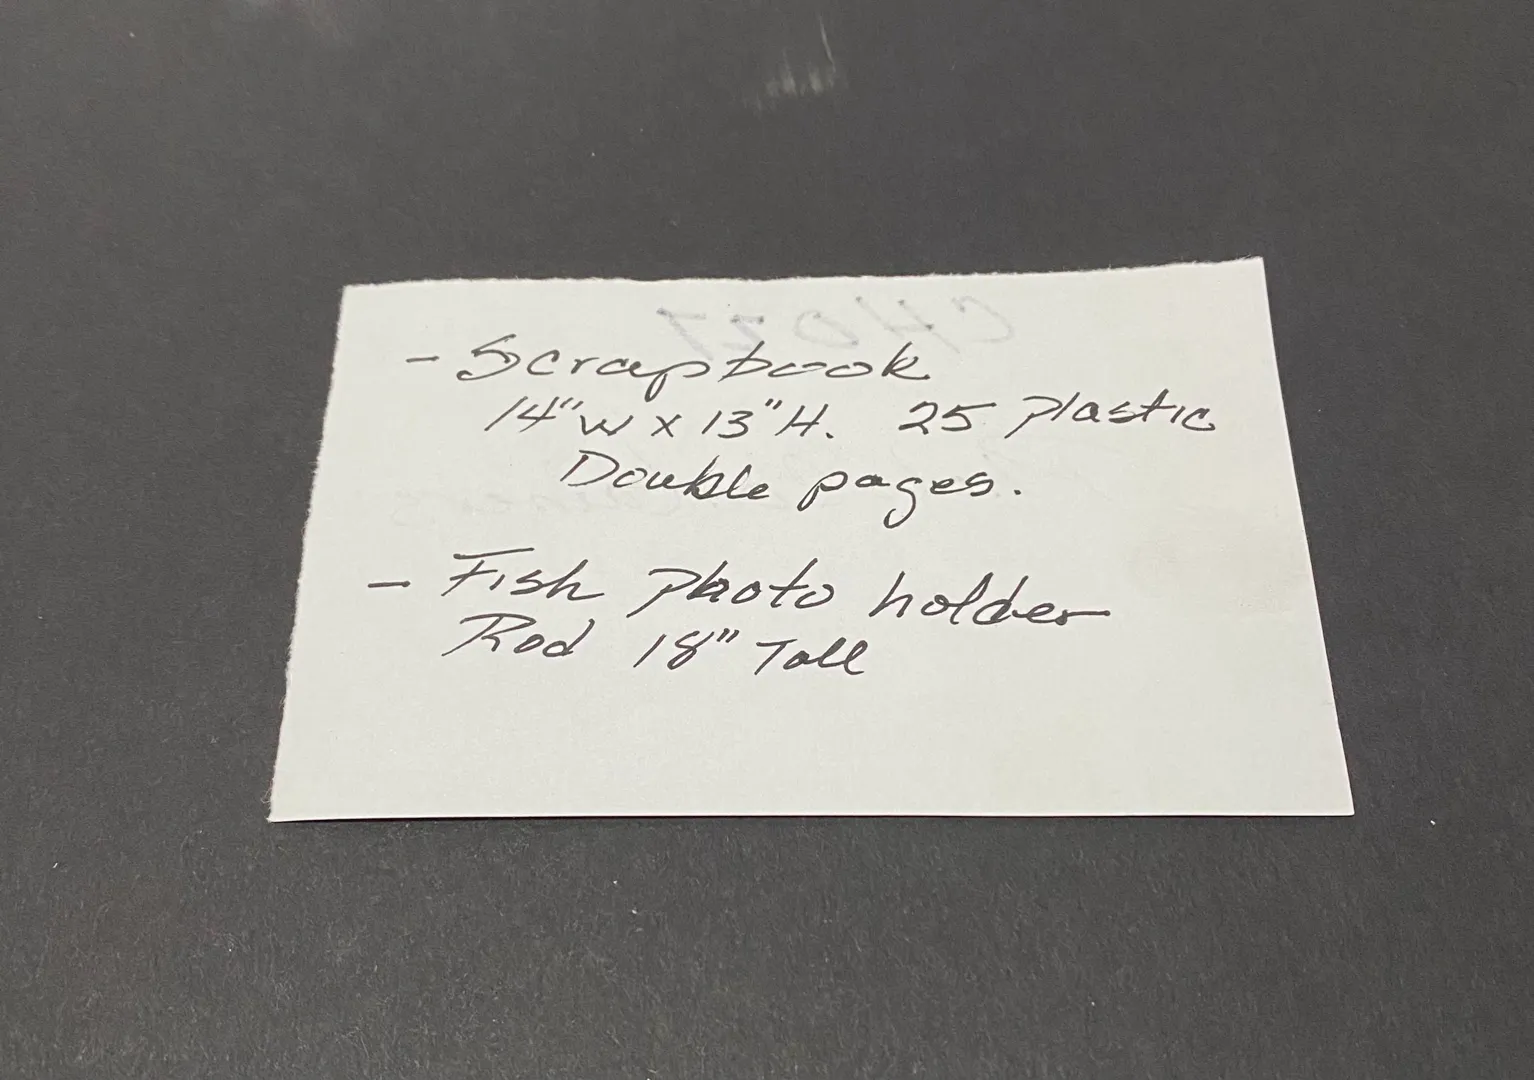 - Scrapbook
14"W x 13"H. 25 plastic
Double pages.
- Fish photo holder
Rod 18" Tall